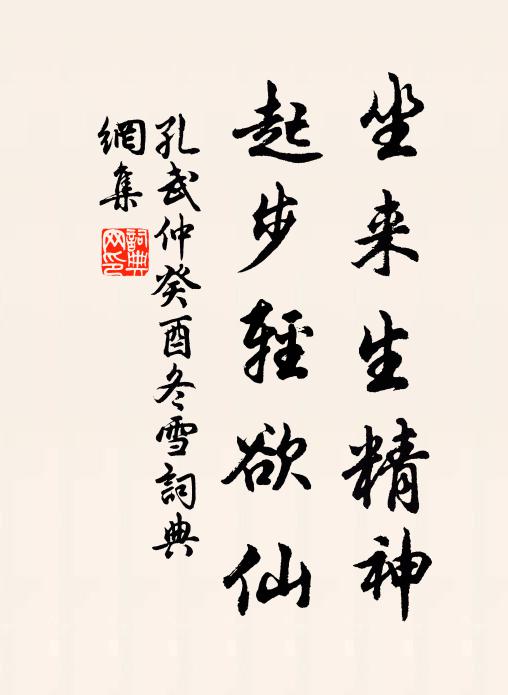 坐来生精神
起步輕欲仙
孔武仲癸酉冬雪詞典
網集
詞典
网印